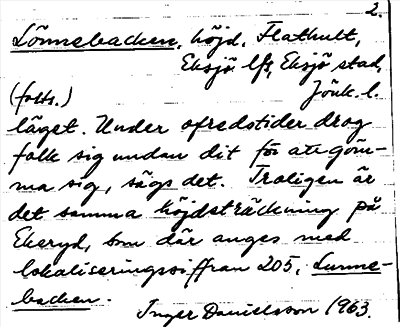 2.
Lönnebacken, höjd, Flathult,
Eksjö lfs, Eksjö stad,
(forts.) Jönk. l.
läget. Under ofredstider drog
folk sig undan dit för att göm-
ma sig, sägs det. Troligen är
det samma höjdsträckning på
Ekeryd, som där anges med
lokaliseringssiffran 205, Lunne-
backen.
Inger Danielsson 1963.